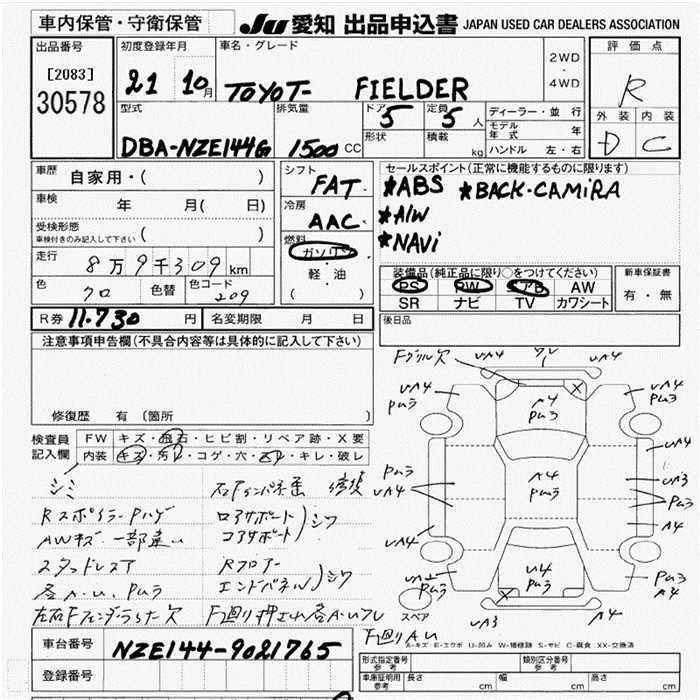 車内保管・守衛保管
JU 愛知 出品申込書 JAPAN USED CAR DEALERS ASSOCIATION
出品番号
[2083]
30578
初度登録年月
21 10月
車名・グレード
TOYOT- FIELDER
2WD
・
4WD
評価点
R
外装 内装
D C
型式
DBA-NZE144G
排気量
1500 CC
ドア
5
定員
5 人
形状
積載
kg
ディーラー・並行
モデル年式 年
ハンドル 左・右
車歴
自家用・( )
車検
年 月( 日)
受検形態
車検付きのみ記入して下さい ( )
走行
8万9千309km
色
クロ
色替
色コード
209
シフト
FAT
冷房
AAC
燃料
ガソリン
・
軽油
( )
セールスポイント(正常に機能するものに限ります)
*ABS *BACK-CAMiRA
*A/W
*NAVi
装備品(純正品に限り○をつけてください)
PS PW エアB AW
SR ナビ TV カワシート
新車保証書
有・無
R券 11.730 円
名変期限 月 日
後日品
注意事項申告欄(不具合内容等は具体的に記入して下さい)
修復歴 有(箇所 )
検査員
記入欄
FW キズ・飛石・ヒビ割・リペア跡・X要
内装 キズ・汚レ・コゲ・穴・スレ・キレ・破レ
シミ
Rスポイラー
AWキズ 一部違い
スタッドレス
ロアサポート
コアサポート
シワ
Rフロアー
エンドパネル
シワ
Fグリル欠
UA4
A4
A4
UA4
UA4
A4
UA4
UA3
A4
UA4
U4
A4
UA3
スペア
A-キズ E-エクボ U-凹み W-補修跡 S-サビ C-腐食 XX-交換済
車台番号
NZE144-9021765
登録番号
形式指定番号
参考
類別区分番号
参考
車庫証明用
参考
長さ cm
幅 cm
高さ cm